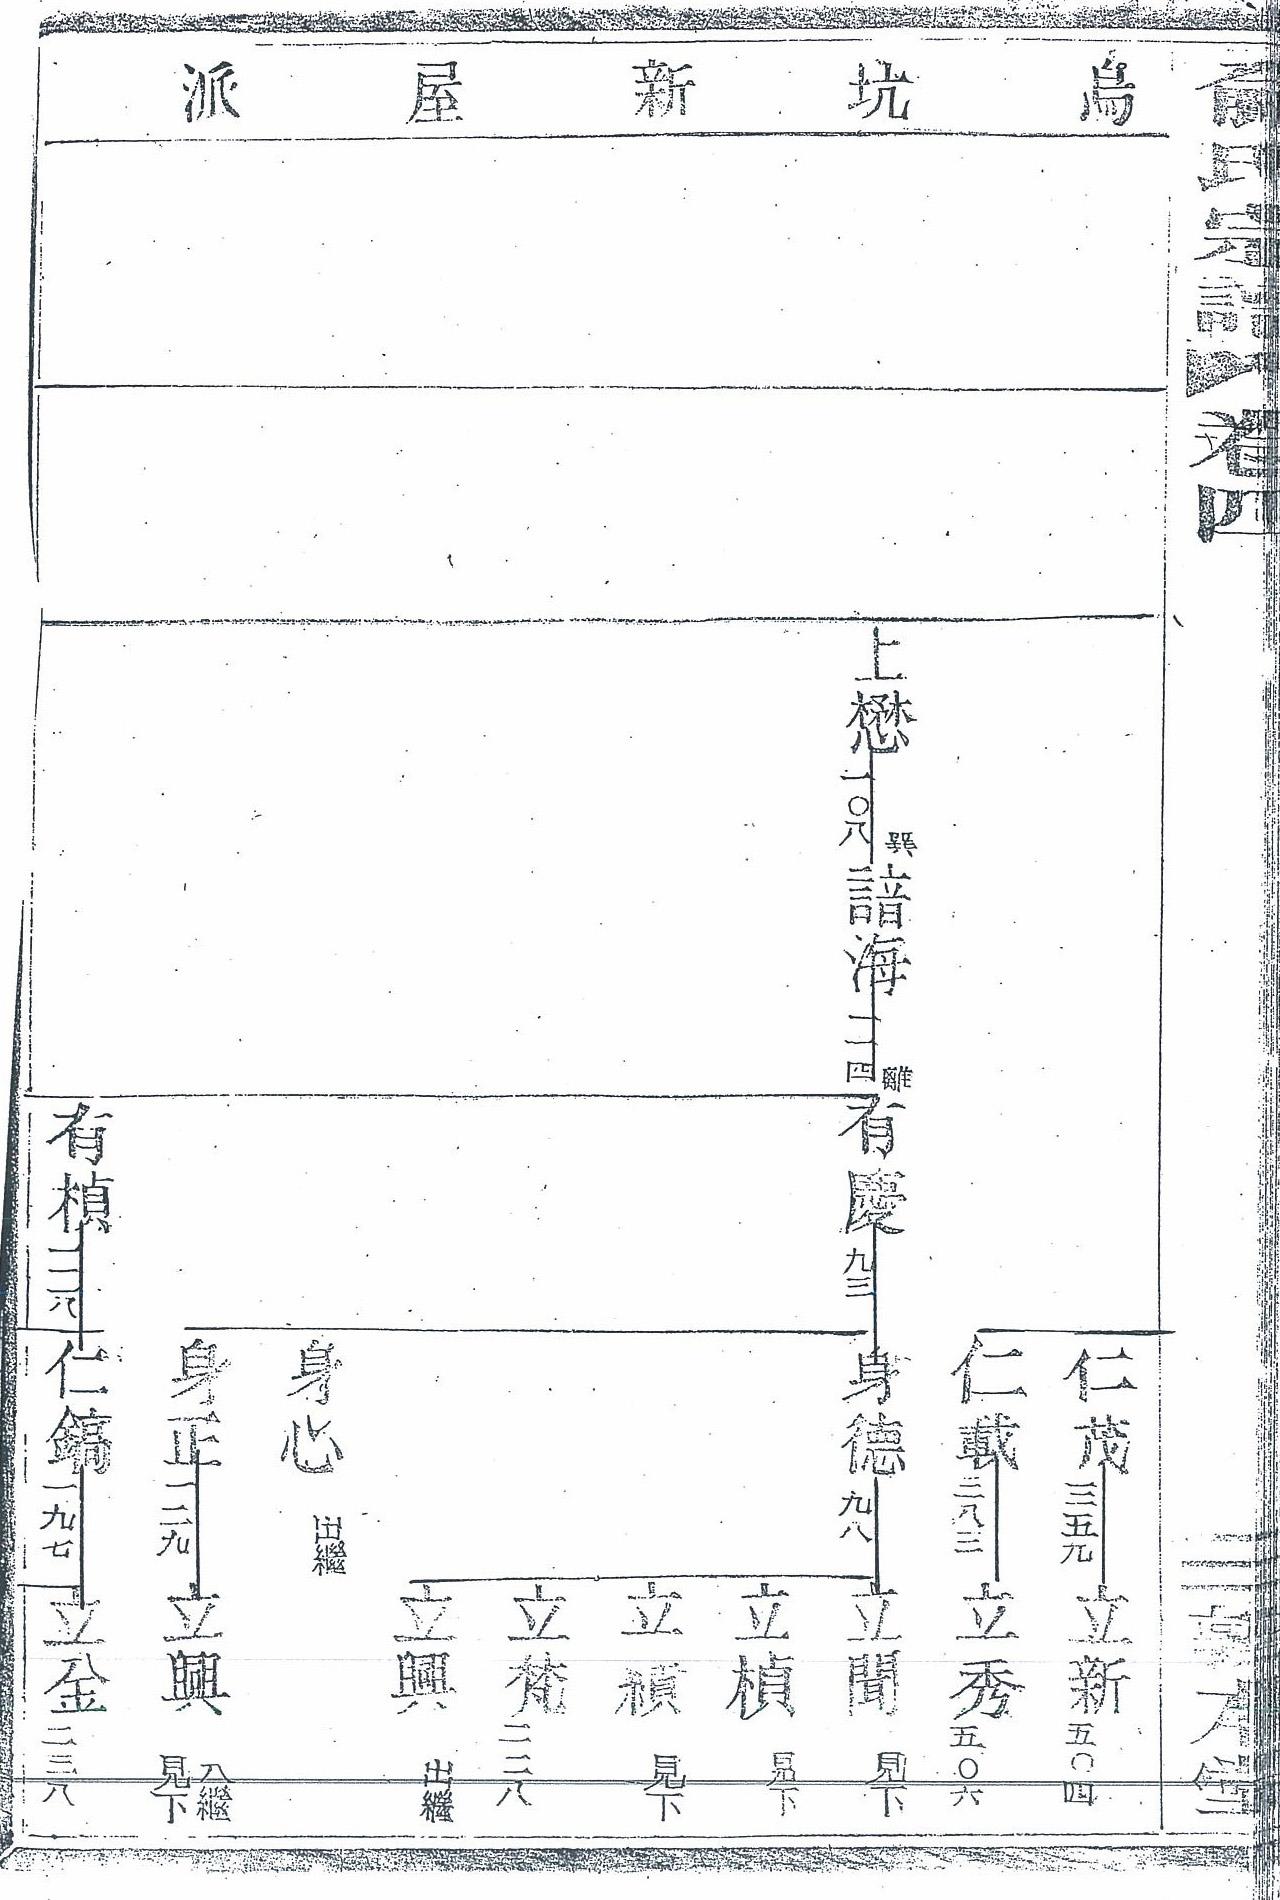 俞氏宗譜
卷四
敦本堂
烏坑新屋派
上懋
一〇八
巽
諳海
一一四
離
有慶
九三
有楨
一一八
仁茂
三五九
仁載
三八三
身德
九八
身心
出繼
身正
一二九
仁鎬
一九七
立新
五〇四
立秀
五〇六
立聞
見下
立楨
見下
立績
見下
立梵
二二八
立興
出繼
立興
入繼
見下
立金
二三八